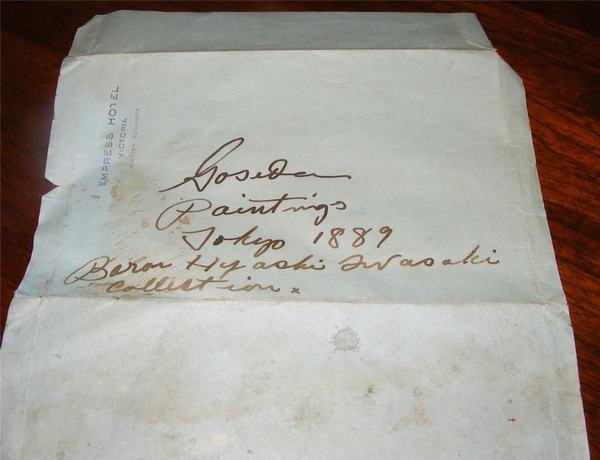 EMPRESS HOTEL
VICTORIA
BRITISH COLUMBIA
Goseda
Paintings
Tokyo 1889
Baron Hyashi Iwasaki
Collection.x